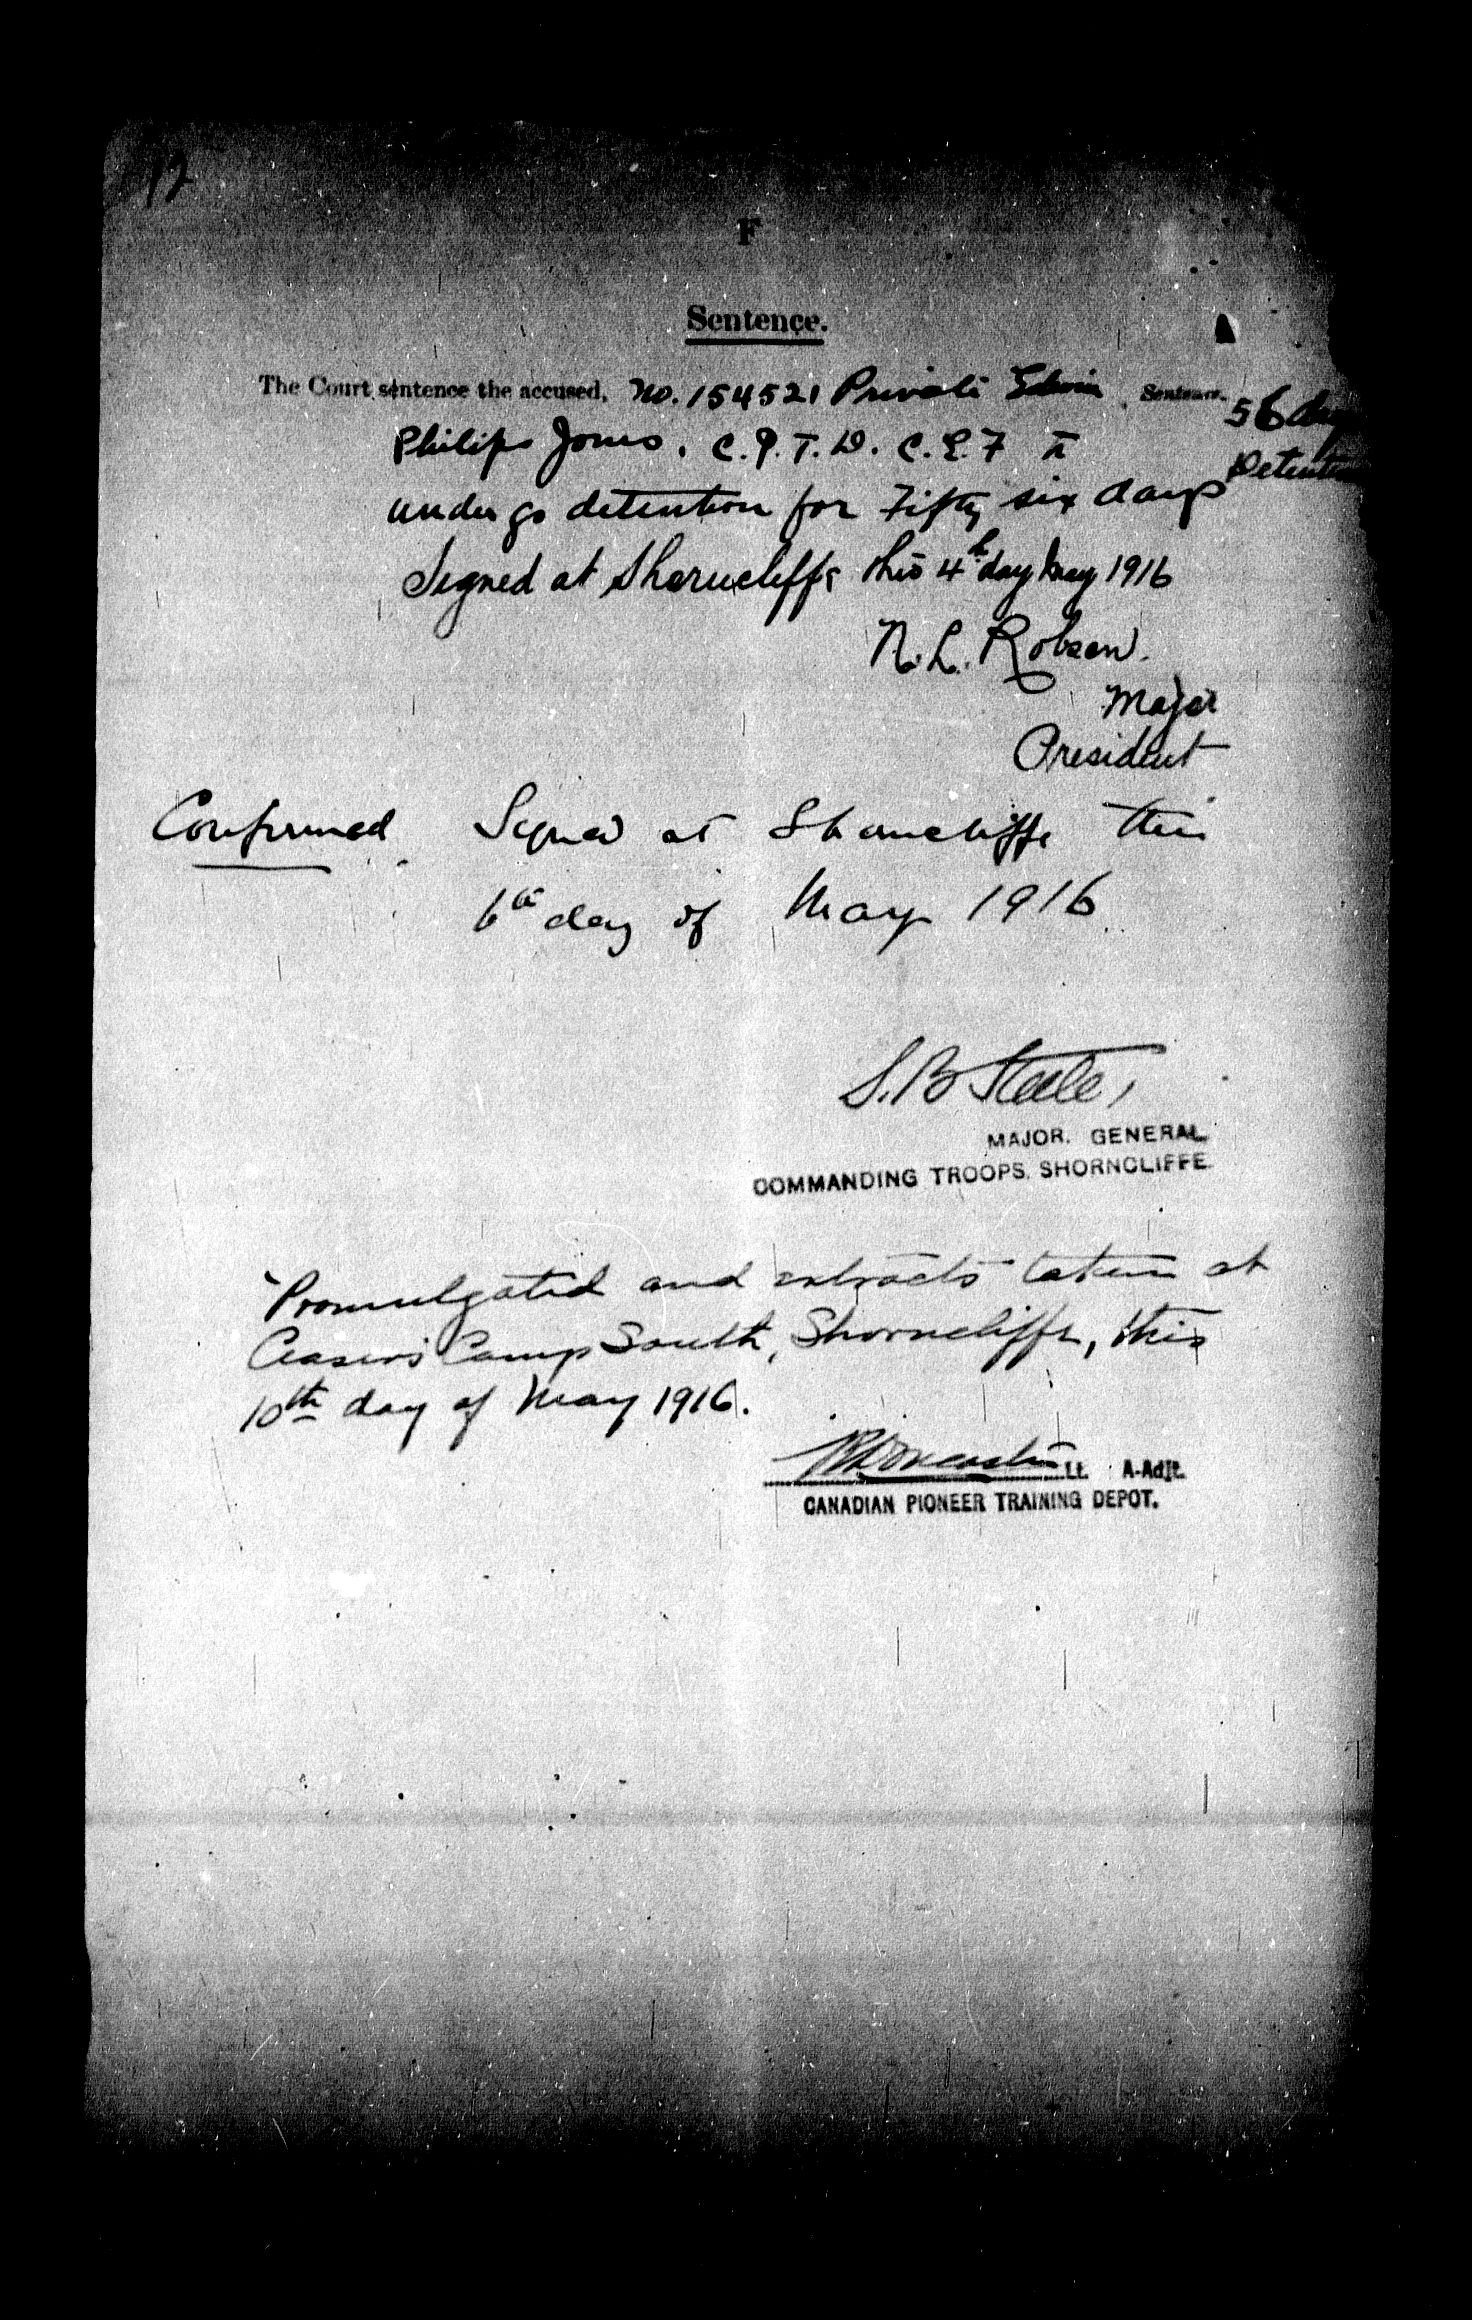 12
F
Sentence.
The Court sentence the accused, No. 154521 Private Edwin Sentence. 56 days
Philips Jones, C.P.T.D. C.E.F to Detention
undergo detention for Fifty six days
Signed at Shorncliffe this 4th day May 1916
N. L. Robson.
Major
President
Confirmed Signed at Shorncliffe this
6th day of May 1916
S. B Steele,
MAJOR. GENERAL.
COMMANDING TROOPS, SHORNCLIFFE.
Promulgated and extracts taken at
Ceasers Camp South, Shorncliffe, this
10th day of May 1916.
Lt. A-Adjt.
CANADIAN PIONEER TRAINING DEPOT.